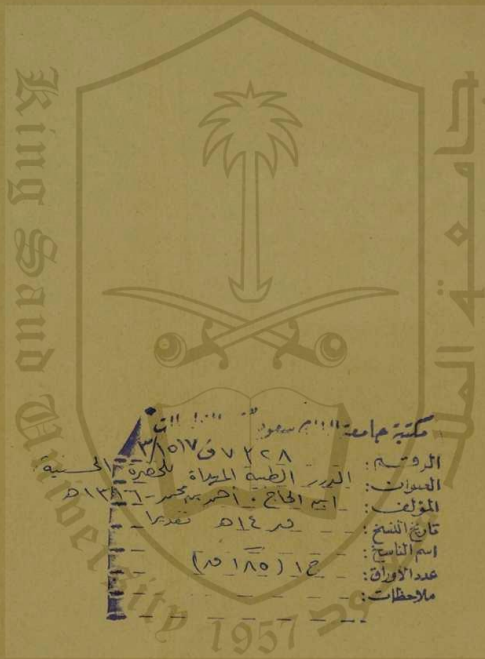 King Saud University
1957
مكتبة جامعة الملك سعود قسم
الرقم: ٧٣٢٨ ف ٣/١٥١٧
العنوان: الدرر الطبية المهداة للحضرة الحسنية
المؤلف: ابن الحاج، أحمد بن محمد - ١٣١٦هـ
تاريخ النسخ: ق ١٤هـ تقديرا
اسم الناسخ:
عدد الأوراق: ج١ (١٨٥ ق)
ملاحظات: